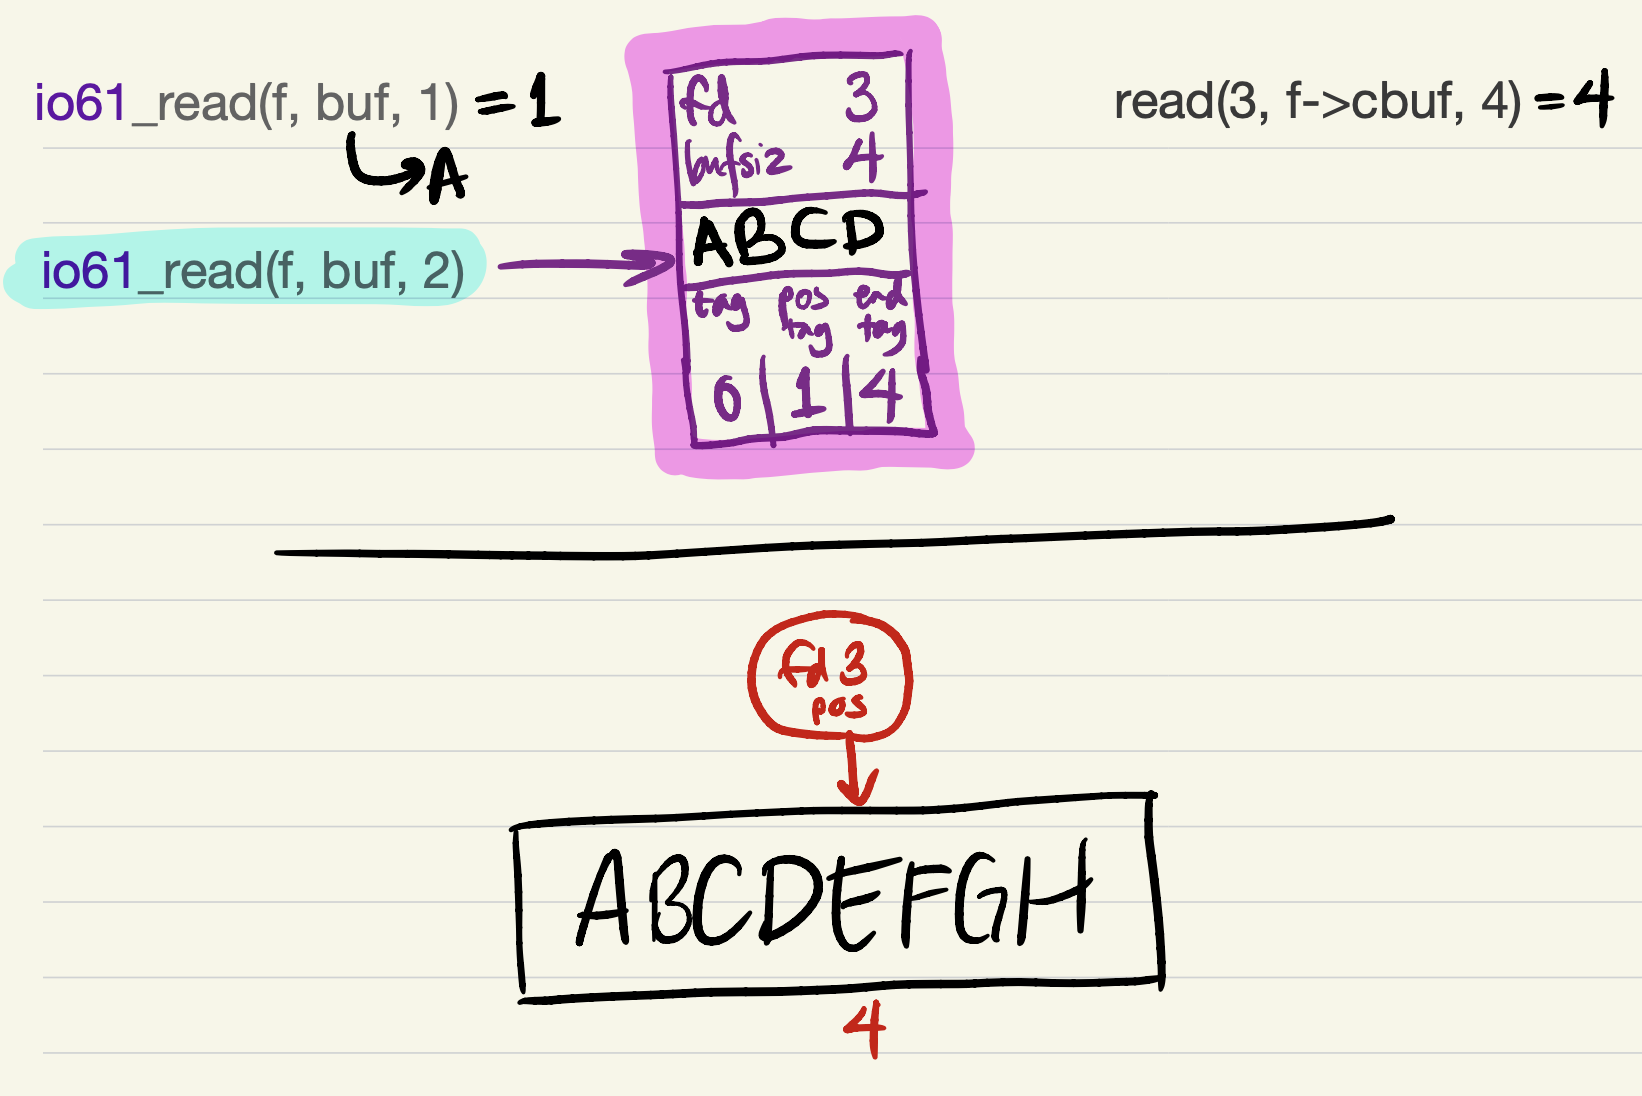 io61_read(f, buf, 1) = 1
A
io61_read(f, buf, 2)
fd 3
bufsiz 4
ABCD
tag pos tag end tag
0 1 4
read(3, f->cbuf, 4) = 4
fd 3
pos
ABCDEFGH
4